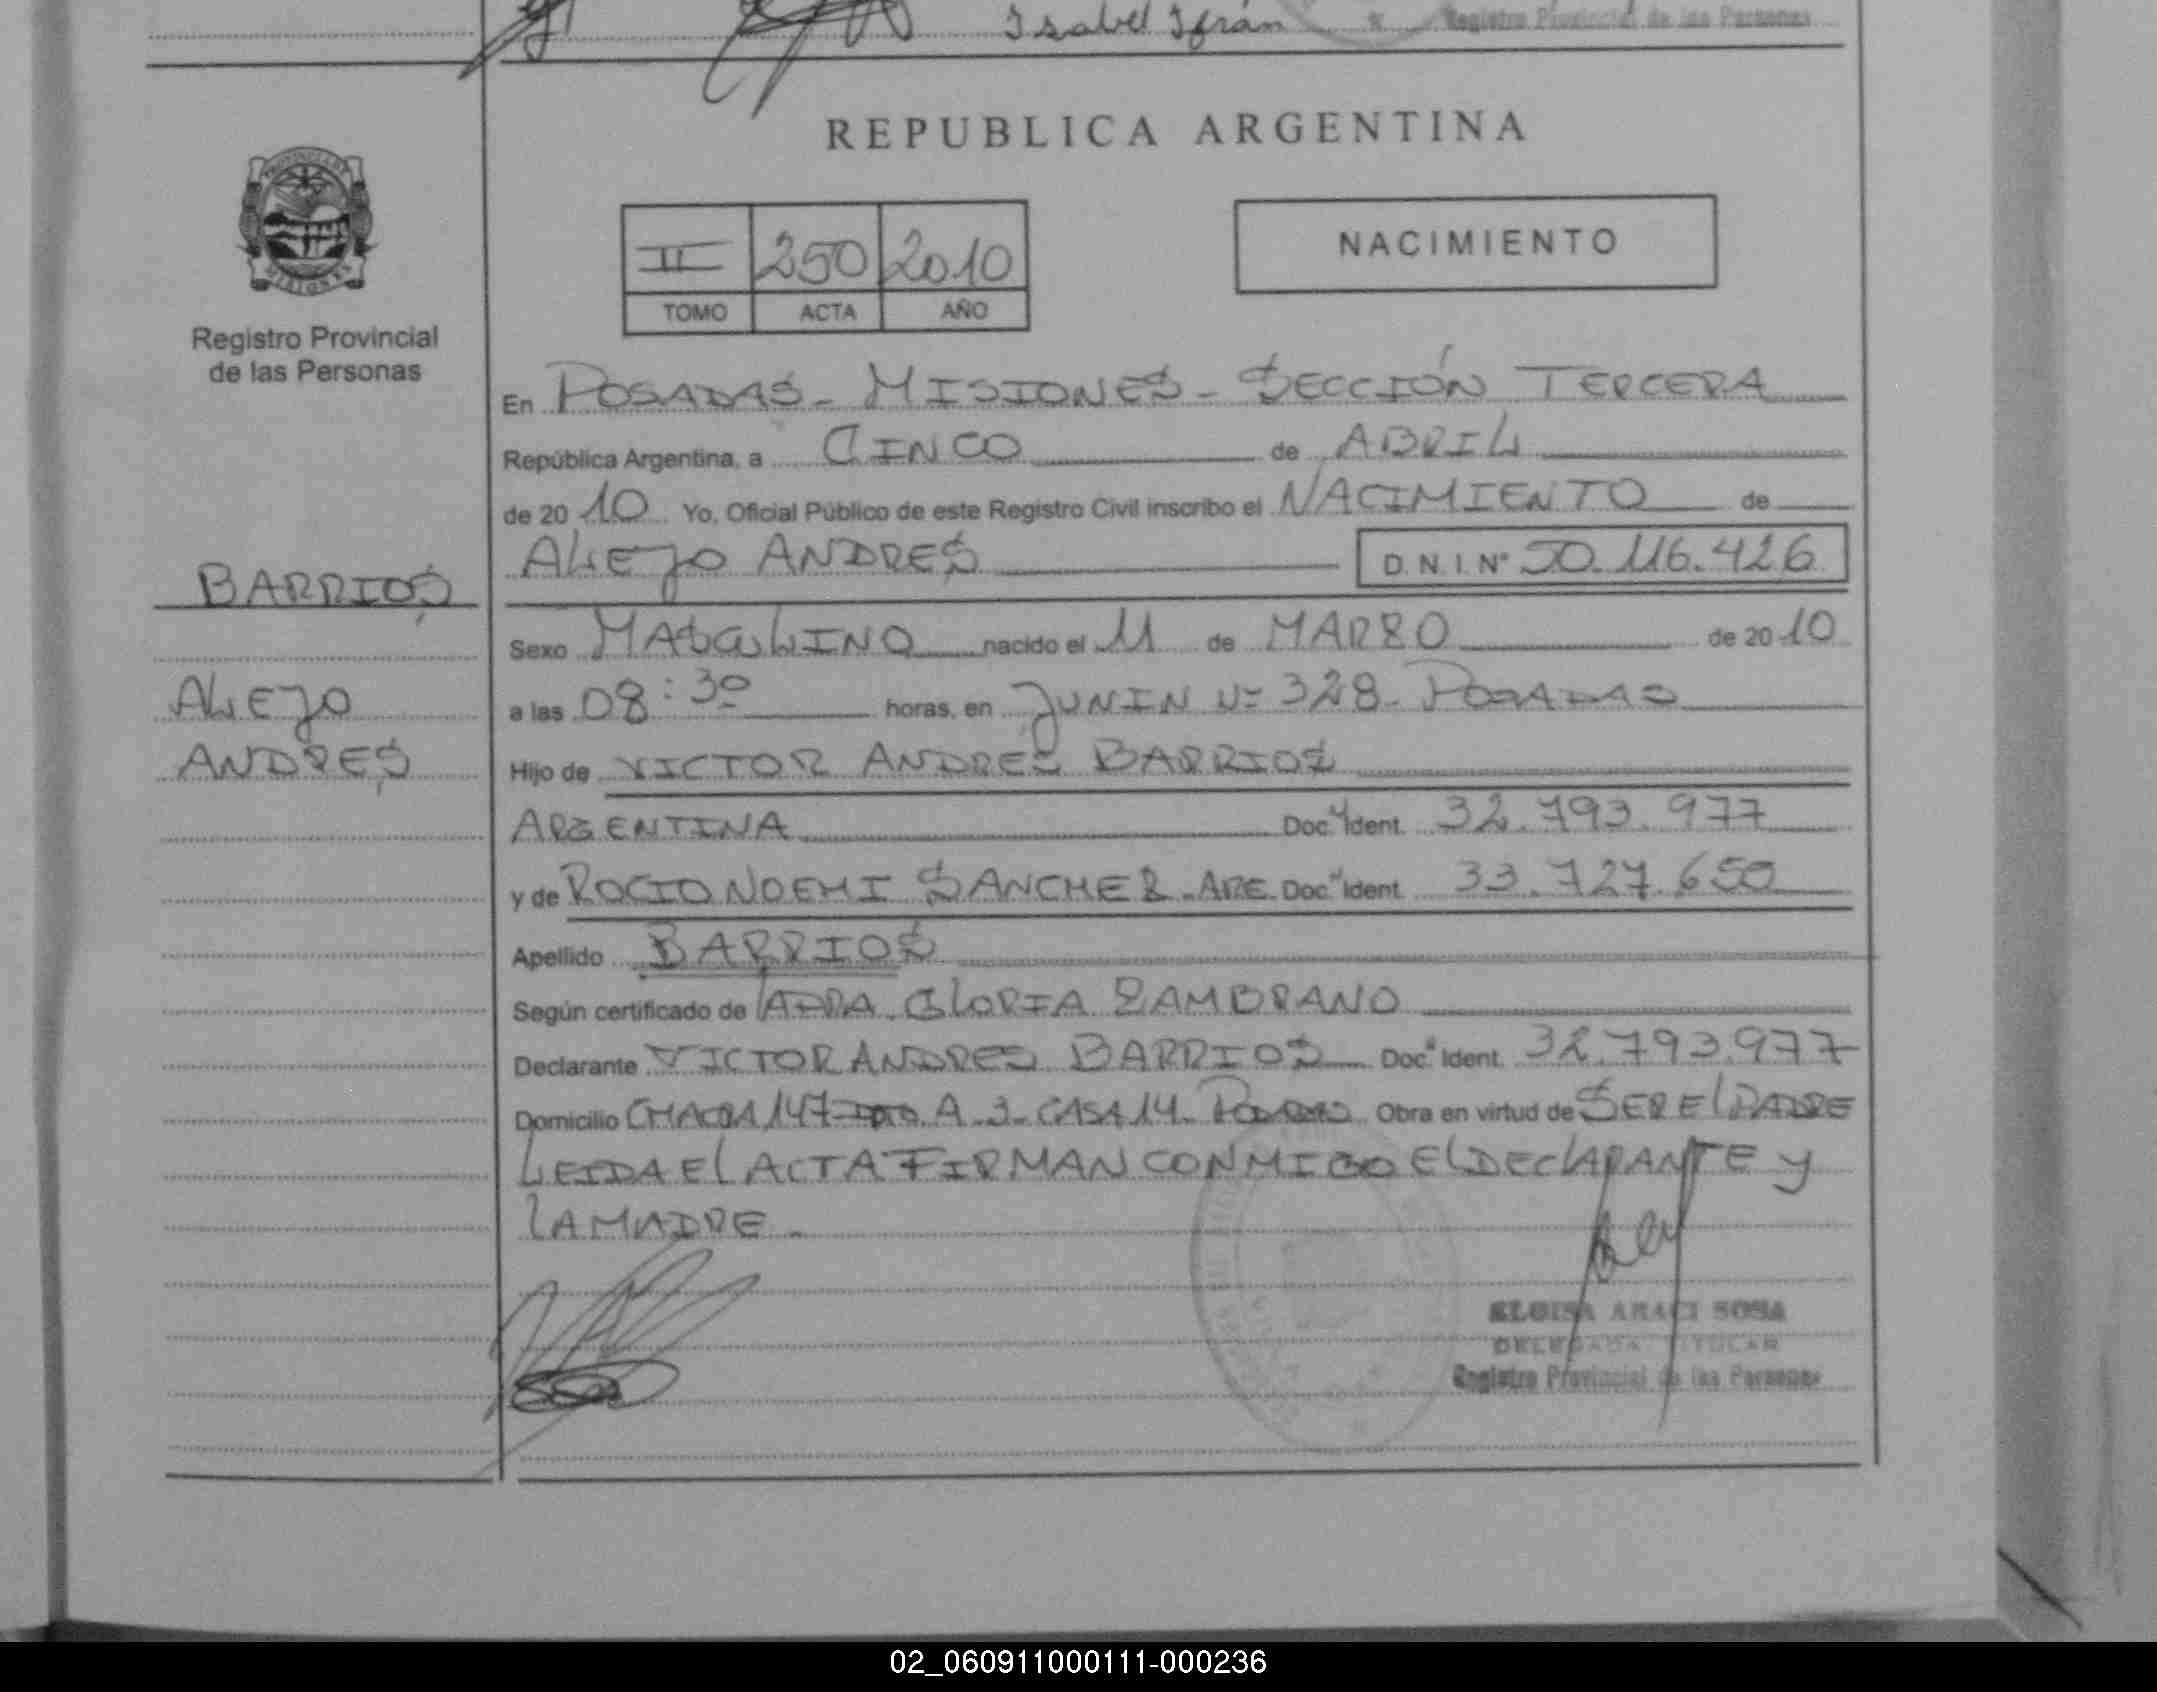 Isabel Ifrán
Registro Provincial de las Personas
REPUBLICA ARGENTINA
II 250 2010
TOMO ACTA AÑO
NACIMIENTO
Registro Provincial
de las Personas
En POSADAS - MISIONES - SECCIÓN TERCERA
República Argentina, a CINCO de ABRIL
de 2010 Yo, Oficial Público de este Registro Civil inscribo el NACIMIENTO de
ALEJO ANDRES D.N.I. Nº 50.116.426
BARRIOS
Sexo MASCULINO nacido el 11 de MARZO de 2010
ALEJO
a las 08:30 horas, en JUNIN Nº 328 - POSADAS
ANDRES
Hijo de VICTOR ANDRES BARRIOS
ARGENTINA Doc. Ident. 32.793.977
y de ROCIO NOEMI SANCHEZ - ARG. Doc. Ident. 33.727.650
Apellido BARRIOS
Según certificado de GLORIA ZAMBRANO
Declarante VICTOR ANDRES BARRIOS Doc. Ident. 32.793.977
Domicilio CHACRA 147 A-3-CASA 14- POSADAS Obra en virtud de SER El PADRE
LEIDA El ACTA FIRMAN CONMIGO El DEClARANTE y
lA MADRE -
ELOISA ARACI SOSA
DELEGADA TITULAR
Registro Provincial de las Personas
02_060911000111-000236